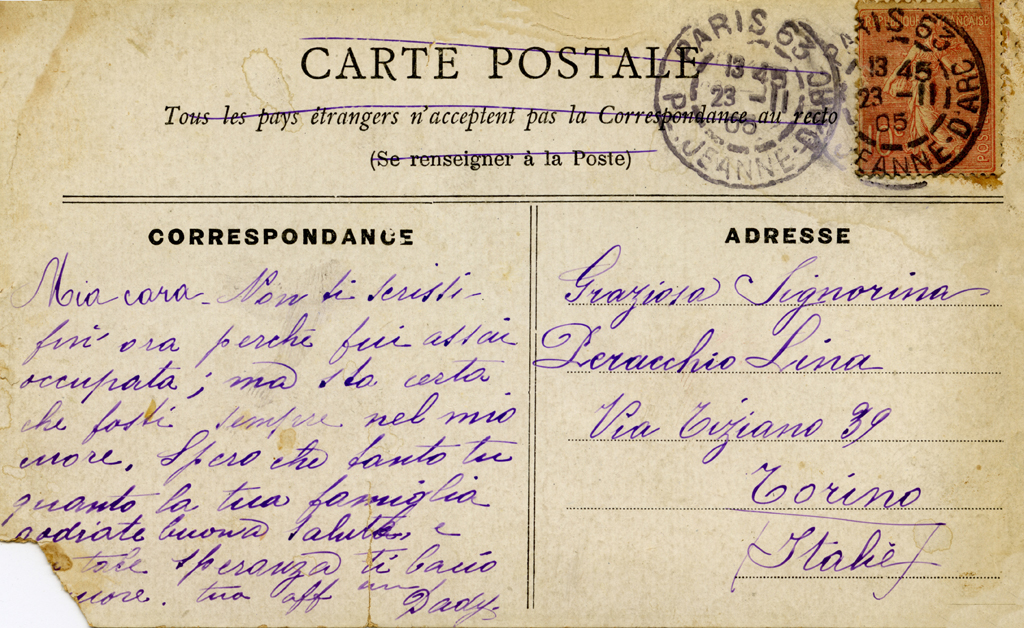 CARTE POSTALE
Tous les pays étrangers n'acceptent pas la Correspondance au recto
(Se renseigner à la Poste)
PARIS 63
13 45
23 - 11
05
Pl. JEANNE-D'ARC
RÉPUBLIQUE FRANÇAISE
PARIS 63
13 45
23 - 11
05
JEANNE-D'ARC
POSTES
CORRESPONDANCE
Mia cara - Non ti scrissi -
fin' ora perchè fui assai
occupata; ma sta certa
che fosti sempre nel mio
cuore. Spero che tanto tu
quanto la tua famiglia
godiate buona salute, e
tale speranza ti bacio
cuore. tua aff
Dady
ADRESSE
Graziosa Signorina
Peracchio Lina
Via Tiziano 39
Torino
(Italie)